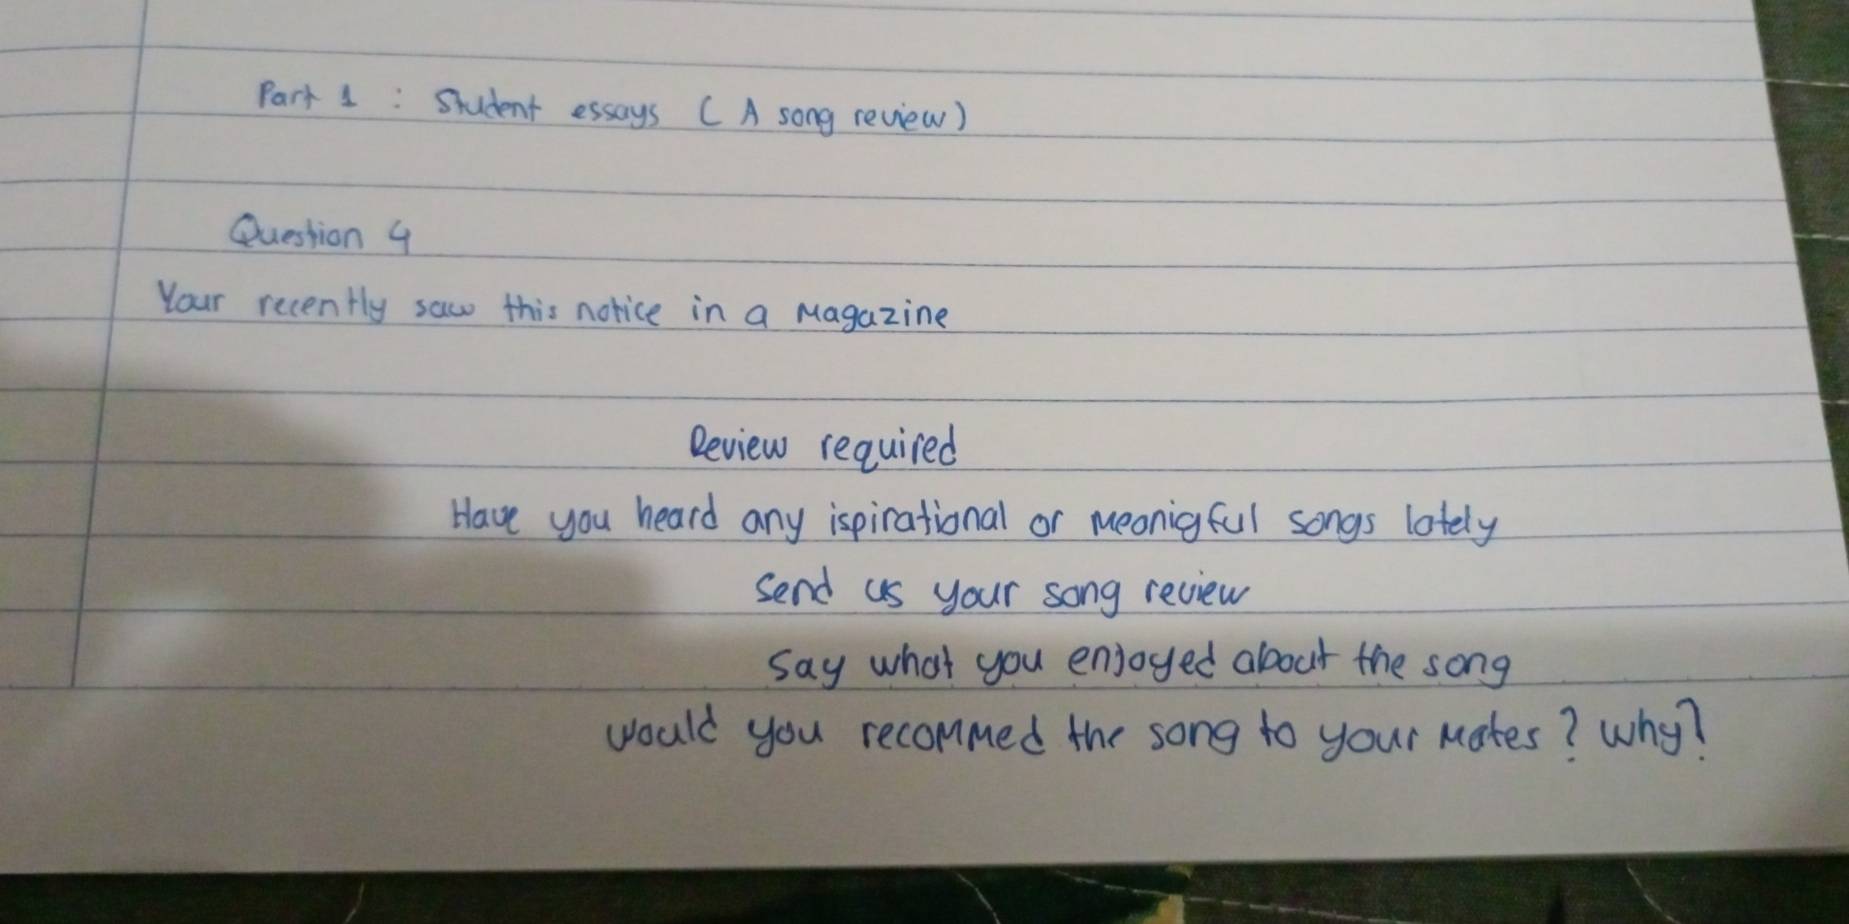 Part 1 : Student essays ( A song review)
Question 4
Your recently saw this notice in a Magazine
Review required
Have you heard any ispirational or meanigful songs lately
Send us your song review
Say what you enjoyed about the song
would you recommed the song to your mates ? Why?